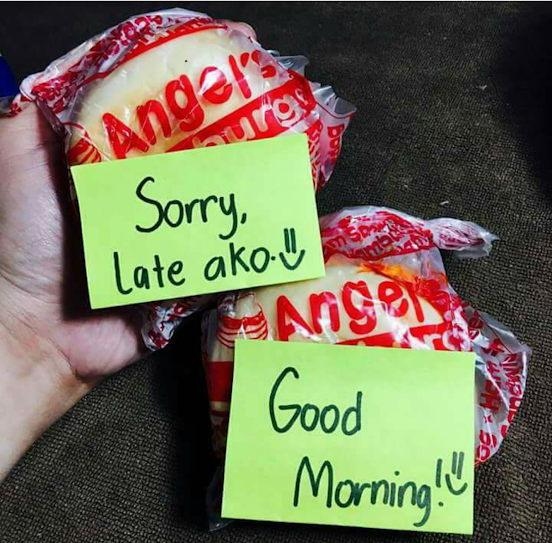 Angel's
burger
Sorry,
Late ako.
Angel
Good
Morning!